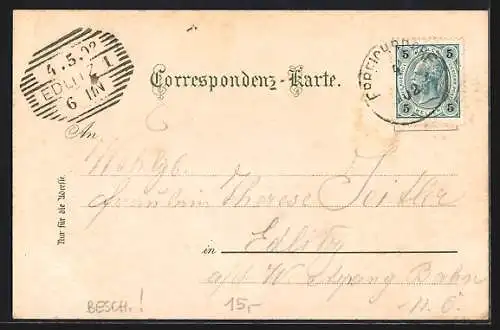 4.5.02
EDLITZ
6 N 1
5 5
5 5
Correspondenz-Karte.
An
Wohlgb.
Fräulein Therese Seidler
Nur für die Adresse.
in Edlitz
a/d W. Aspang Bahn
N. Ö.
BESCH.!
15,-